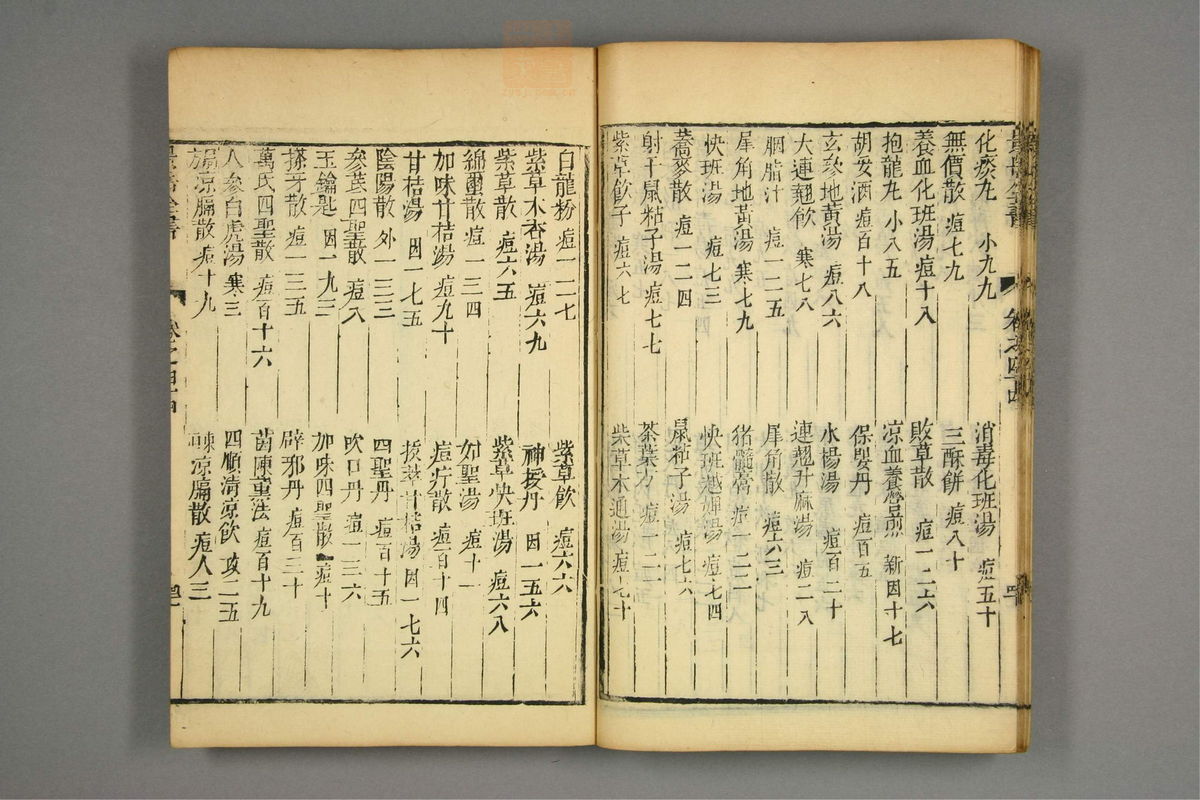 景岳全書 卷之四十四
化痰丸 小九九 消毒化班湯 痘五十
無價散 痘七九 三酥餅 痘八十
養血化班湯 痘十八 敗草散 痘一二六
抱龍丸 小八五 凉血養營煎 新因十七
胡荽酒 痘百十八 保嬰丹 痘百五
玄參地黃湯 痘八六 水楊湯 痘百二十
大連翹飲 寒七八 連翹升麻湯 痘二八
胭脂汁 痘一二五 犀角散 痘六三
犀角地黃湯 寒七九 猪髓膏 痘一二二
快班湯 痘七三 快班越婢湯 痘七四
蕎麥散 痘一二四 鼠粘子湯 痘七六
射干鼠粘子湯 痘七七 茶葉方 痘一二一
紫草飲子 痘六七 紫草木通湯 痘七十
白龍粉 痘一二七 紫草飲 痘六六
紫草木香湯 痘六九 神授丹 因一五六
紫草散 痘六五 紫草快班湯 痘六八
綿璽散 痘一三四 如聖湯 痘十一
加味甘桔湯 痘九十 痘疔散 痘百十四
甘桔湯 因一七五 甘桔湯 因一七六
陰陽散 外一三三 四聖丹 痘百十五
參芪四聖散 痘八 吹口丹 痘一三六
玉鑰匙 因一九三 加味四聖散 痘十
搽牙散 痘一三五 辟邪丹 痘百三十
萬氏四聖散 痘百十六 茵陳熏法 痘百十九
人參白虎湯 寒三 四順清凉飲 攻二五
凉膈散 痘十九 凉膈散 痘八三
景岳全書 卷之四十四